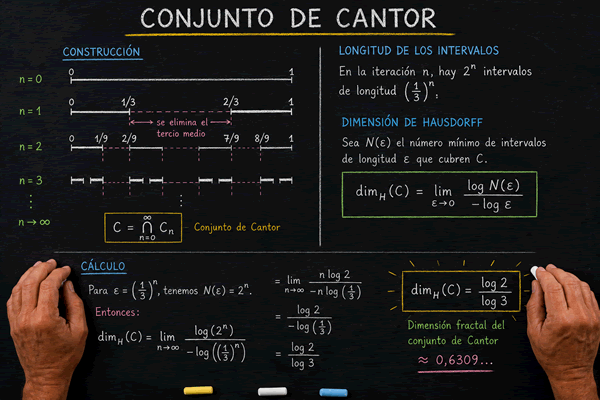 CONJUNTO DE CANTOR
CONSTRUCCIÓN
n = 0
0 1
n = 1
0 1/3 2/3 1
se elimina el
tercio medio
n = 2
0 1/9 2/9 7/9 8/9 1
n = 3
⋮ ⋮
n → ∞
C = ⋂_{n=0}^{∞} C_n Conjunto de Cantor
LONGITUD DE LOS INTERVALOS
En la iteración n, hay 2^n intervalos
de longitud (1/3)^n.
DIMENSIÓN DE HAUSDORFF
Sea N(ε) el número mínimo de intervalos
de longitud ε que cubren C.
dim_H(C) = lim_{ε→0} log N(ε) / -log ε
CÁLCULO
Para ε = (1/3)^n, tenemos N(ε) = 2^n.
Entonces:
dim_H(C) = lim_{n→∞} log(2^n) / -log((1/3)^n)
= lim_{n→∞} n log 2 / -n log(1/3)
= log 2 / -log(1/3)
= log 2 / log 3
dim_H(C) = log 2 / log 3
Dimensión fractal del
conjunto de Cantor
≈ 0,6309...